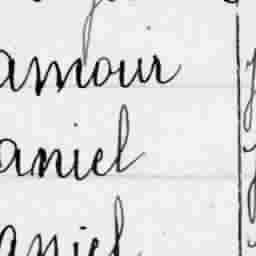 amour
aniel
aniel